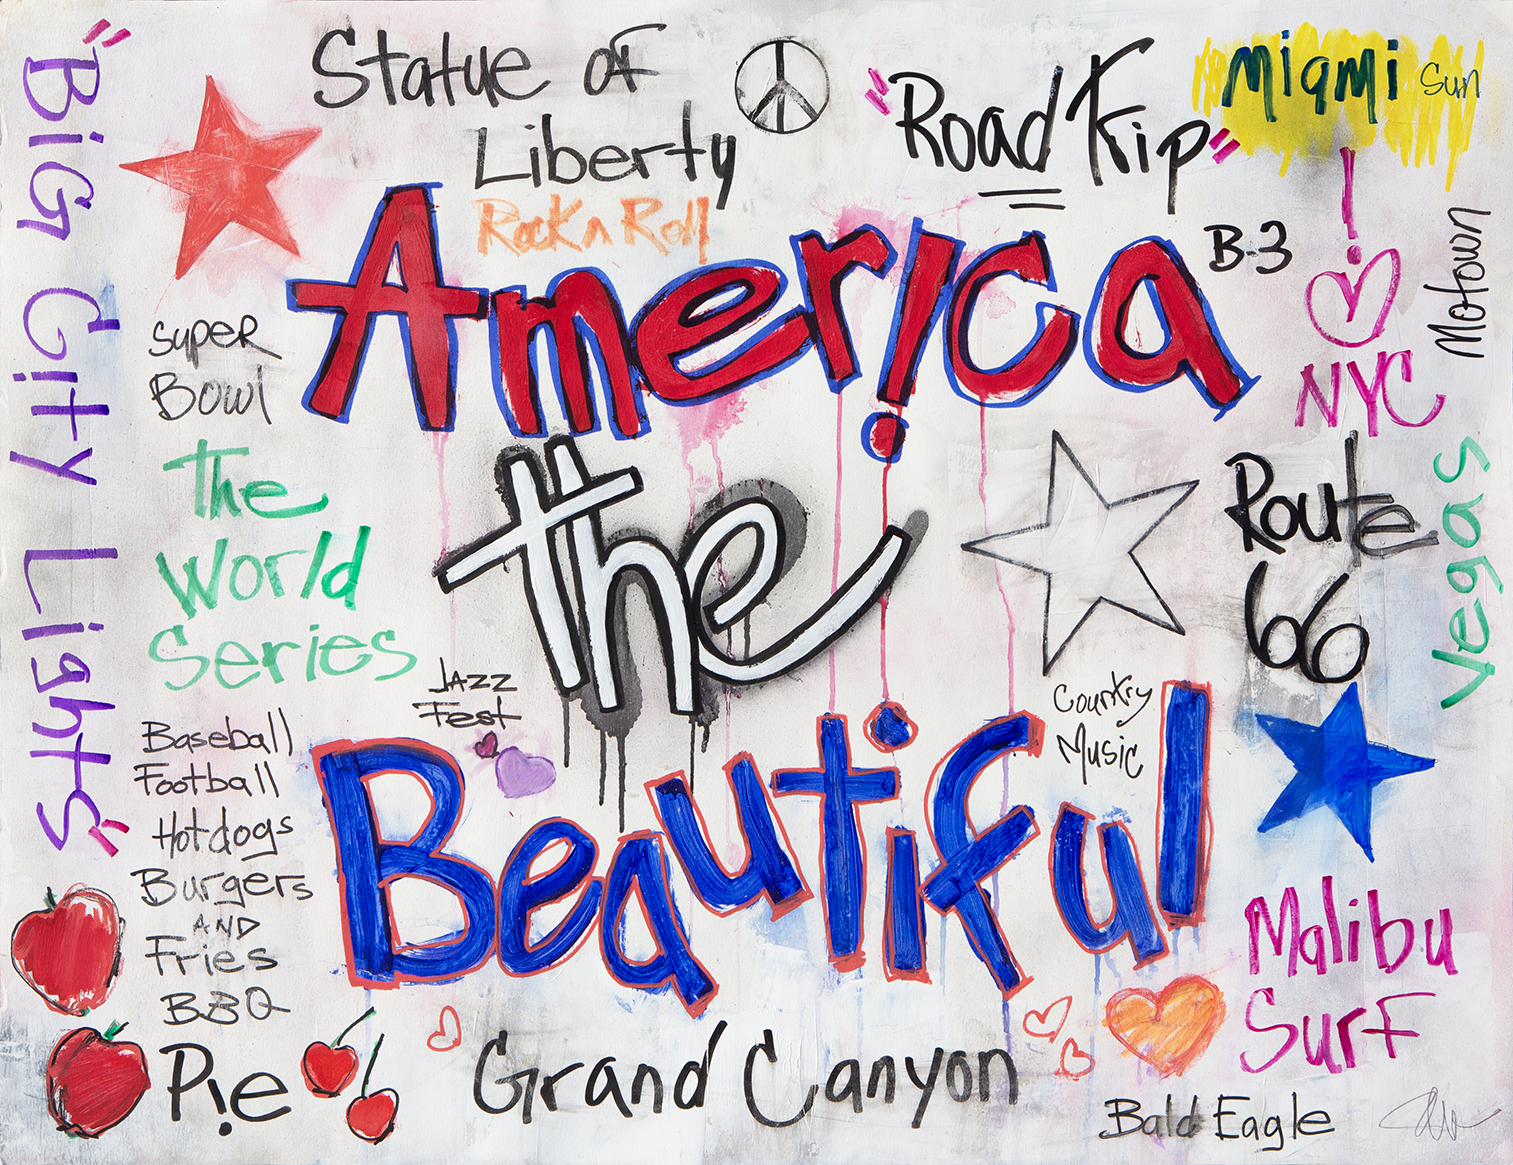 "Big City Lights"
Statue of
Liberty
Rock n Roll
"Road Trip"
Miami Sun
America
B-3
! NYC
Motown
Super
Bowl
The
World
Series
the
Route
66
Vegas
Jazz
Fest
Country
Music
Beautiful
Baseball
Football
Hotdogs
Burgers
AND
Fries
BBQ
Pie
Grand Canyon
Malibu
Surf
Bald Eagle